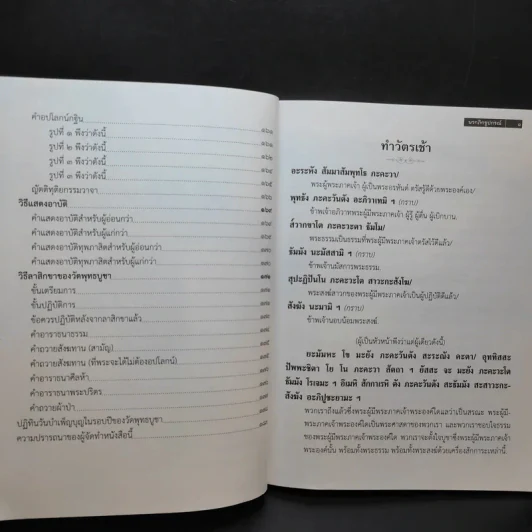 คำอปโลกน์กฐิน
รูปที่ ๑ พึงว่าดังนี้
รูปที่ ๒ พึงว่าดังนี้
รูปที่ ๓ พึงว่าดังนี้
รูปที่ ๔ พึงว่าดังนี้
ญัตติทุติกรรมวาจา
วิธีแสดงอาบัติ
คำแสดงอาบัติสำหรับผู้อ่อนกว่า
คำแสดงอาบัติสำหรับผู้แก่กว่า
คำแสดงอาบัติทุพภาสิตสำหรับผู้อ่อนกว่า
คำแสดงอาบัติทุพภาสิตสำหรับผู้แก่กว่า
วิธีลาสิกขาของวัดพุทธบูชา
ขั้นเตรียมการ
ขั้นปฏิบัติการ
ข้อควรปฏิบัติหลังจากลาสิกขาแล้ว
คำอาราธนาธรรม
คำถวายสังฆทาน (สามัญ)
คำถวายสังฆทาน (ที่พระจะได้ไม่ต้องอปโลกน์)
คำอาราธนาศีลห้า
คำอาราธนาพระปริตร
คำถวายผ้าป่า
ปฏิทินวันบำเพ็ญบุญในรอบปีของวัดพุทธบูชา
ความปรารถนาของผู้จัดทำหนังสือนี้
ทำวัตรเช้า
อะระหัง สัมมาสัมพุทโธ ภะคะวา/
พระผู้มีพระภาคเจ้า ผู้เป็นพระอรหันต์ ตรัสรู้ดีด้วยพระองค์เอง/
พุทธัง ภะคะวันตัง อะภิวาเทมิ ฯ (กราบ)
ข้าพเจ้าอภิวาทพระผู้มีพระภาคเจ้า ผู้รู้ ผู้ตื่น ผู้เบิกบาน.
ส๎วากขาโต ภะคะวะตา ธัมโม/
พระธรรมเป็นธรรมที่พระผู้มีพระภาคเจ้าตรัสไว้ดีแล้ว/
ธัมมัง นะมัสสามิ ฯ (กราบ)
ข้าพเจ้านมัสการพระธรรม.
สุปะฏิปันโน ภะคะวะโต สาวะกะสังโฆ/
พระสงฆ์สาวกของพระผู้มีพระภาคเจ้าเป็นผู้ปฏิบัติดีแล้ว/
สังฆัง นะมามิ ฯ (กราบ)
ข้าพเจ้านอบน้อมพระสงฆ์.
(ผู้เป็นหัวหน้าพึงว่าแต่ผู้เดียวดังนี้)
ยะมัมหะ โข มะยัง ภะคะวันตัง สะระณัง คะตา/ อุททิสสะ
ปัพพะชิตา โย โน ภะคะวา สัตถา ฯ ยัสสะ จะ มะยัง ภะคะวะโต
ธัมมัง โรเจมะ ฯ อิเมหิ สักกาเรหิ ตัง ภะคะวันตัง สะธัมมัง สะสาวะกะ-
สังฆัง อะภิปูชะยามะ ฯ
พวกเราถึงแล้วซึ่งพระผู้มีพระภาคเจ้าพระองค์ใดแลว่าเป็นสรณะ พระผู้มี-
พระภาคเจ้าพระองค์ใดเป็นพระศาสดาของพวกเรา และพวกเราชอบใจธรรม
ของพระผู้มีพระภาคเจ้าพระองค์ใด พวกเราจะตั้งใจบูชาซึ่งพระผู้มีพระภาคเจ้า
พระองค์นั้น พร้อมทั้งพระธรรม พร้อมทั้งพระสงฆ์ด้วยเครื่องสักการะเหล่านี้.